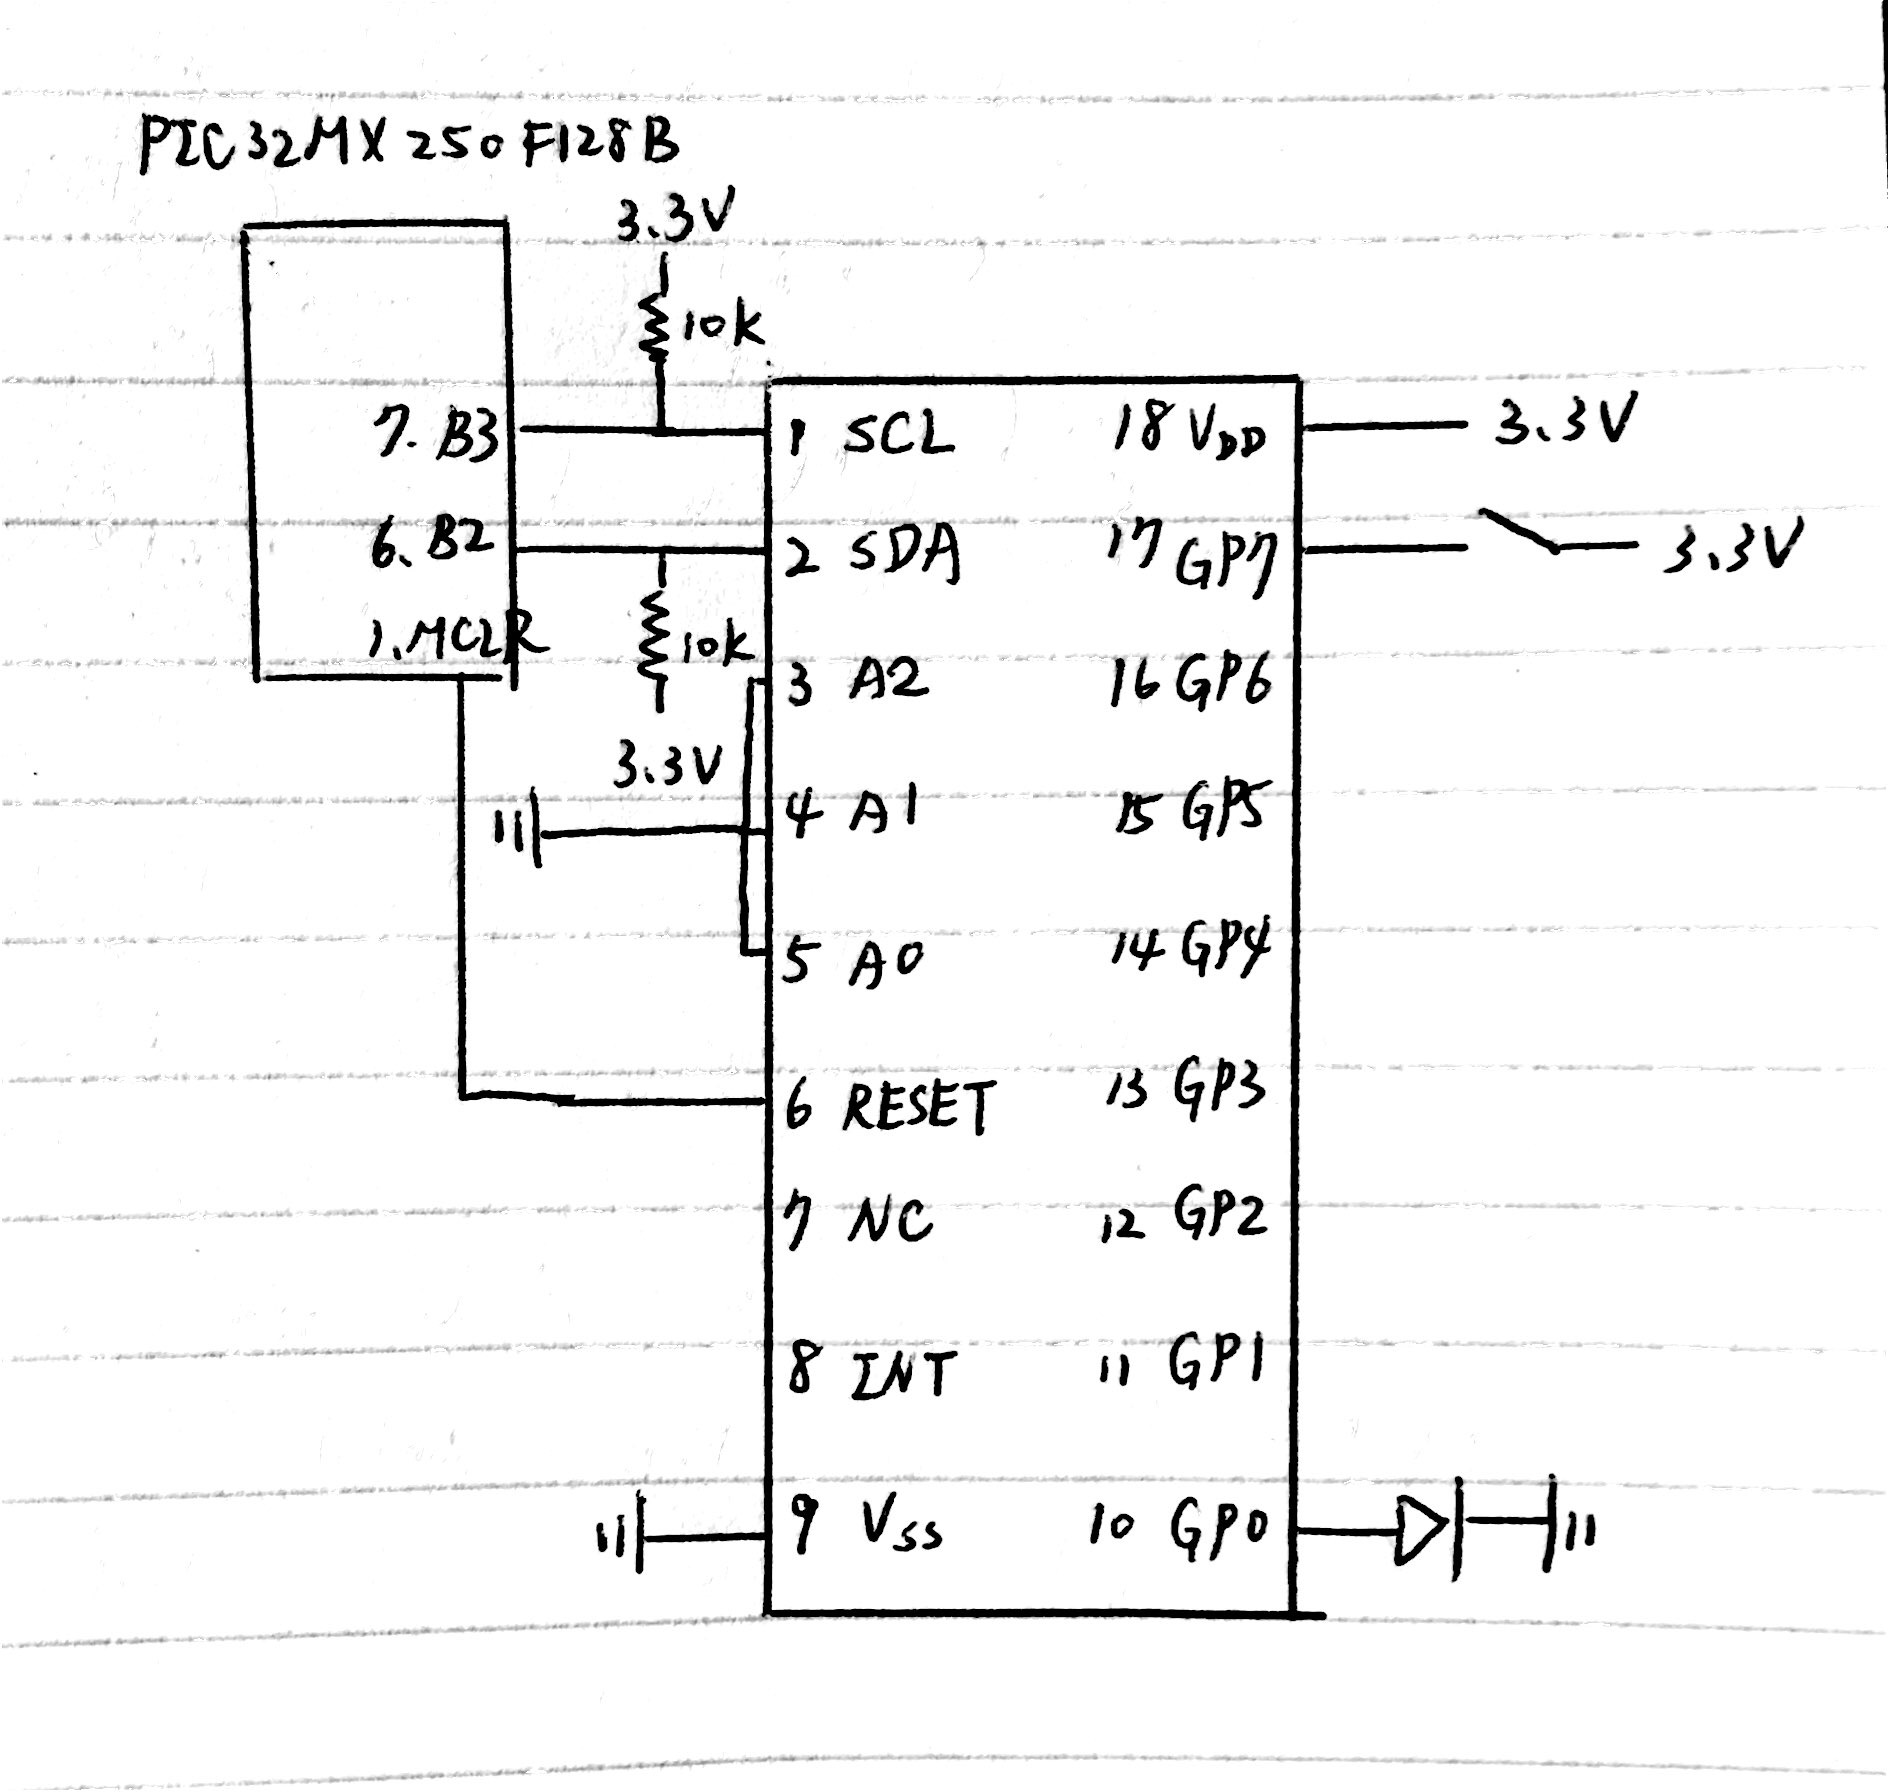 PIC32MX250F128B
3.3V
10k
7. B3
6. B2
1. MCLR
10k
3.3V
1 SCL
2 SDA
3 A2
4 A1
5 A0
6 RESET
7 NC
8 INT
9 Vss
18 VDD
17 GP7
16 GP6
15 GP5
14 GP4
13 GP3
12 GP2
11 GP1
10 GP0
3.3V
3.3V